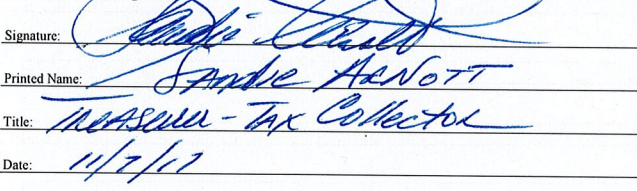 Signature: Sandie Arnott
Printed Name: SANDIE ARNOTT
Title: TREASURER - TAX Collector
Date: 11/7/17